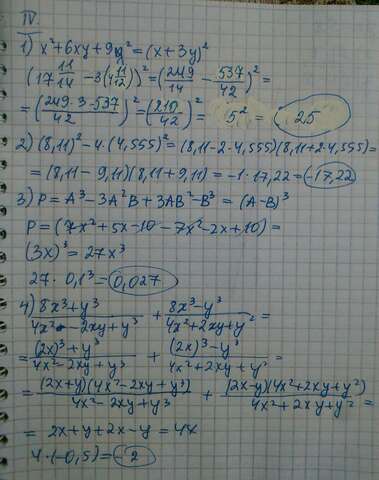 IV.
1) x² + 6xy + 9y² = (x + 3y)²
(17 11/14 - 3(4 11/12))² = (249/14 - 537/42)² =
= (249·3-537/42)² = (210/42)² = 5² = 25
2) (8,11)² - 4·(4,555)² = (8,11-2·4,555)(8,11+2·4,555) =
= (8,11 - 9,11)(8,11 + 9,11) = -1·17,22 = -17,22
3) P = A³ - 3A²B + 3AB² - B³ = (A-B)³
P = (7x² + 5x - 10 - 7x² - 2x + 10) =
(3x)³ = 27x³
27 · 0,1³ = 0,027
4) 8x³+y³/4x² - 2xy+y³ + 8x³-y³/4x²+2xy+y² =
= (2x)³+y³/4x² - 2xy+y³ + (2x)³-y³/4x²+2xy+y² =
= (2x+y)(4x² - 2xy+y³)/4x² - 2xy+y³ + (2x-y)(4x²+2xy+y²)/4x²+2xy+y² =
= 2x+y+2x-y = 4x
4·(-0,5) = -2